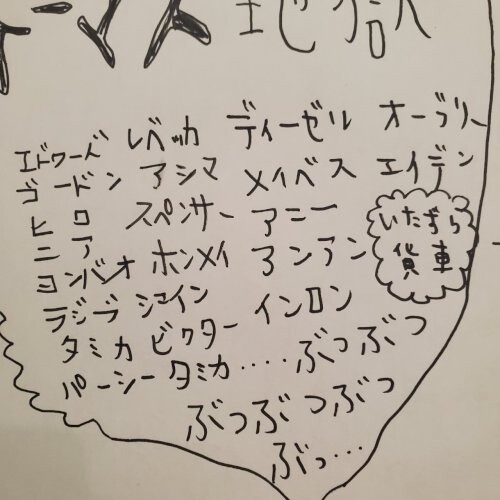 トーマス 地獄
エドワーズ レベッカ ディーゼル オーブリー
ゴードン アシマ メイベス エイデン
ヒロ スペンサー アニー
いたずら
貨車
ニア
ヨンバオ ホンメイ アンアン
ラジブ シェイン インロン
タミカ ビクター
パーシー タミカ‥‥ぶつぶつ
ぶつぶつぶつ
ぶつ…